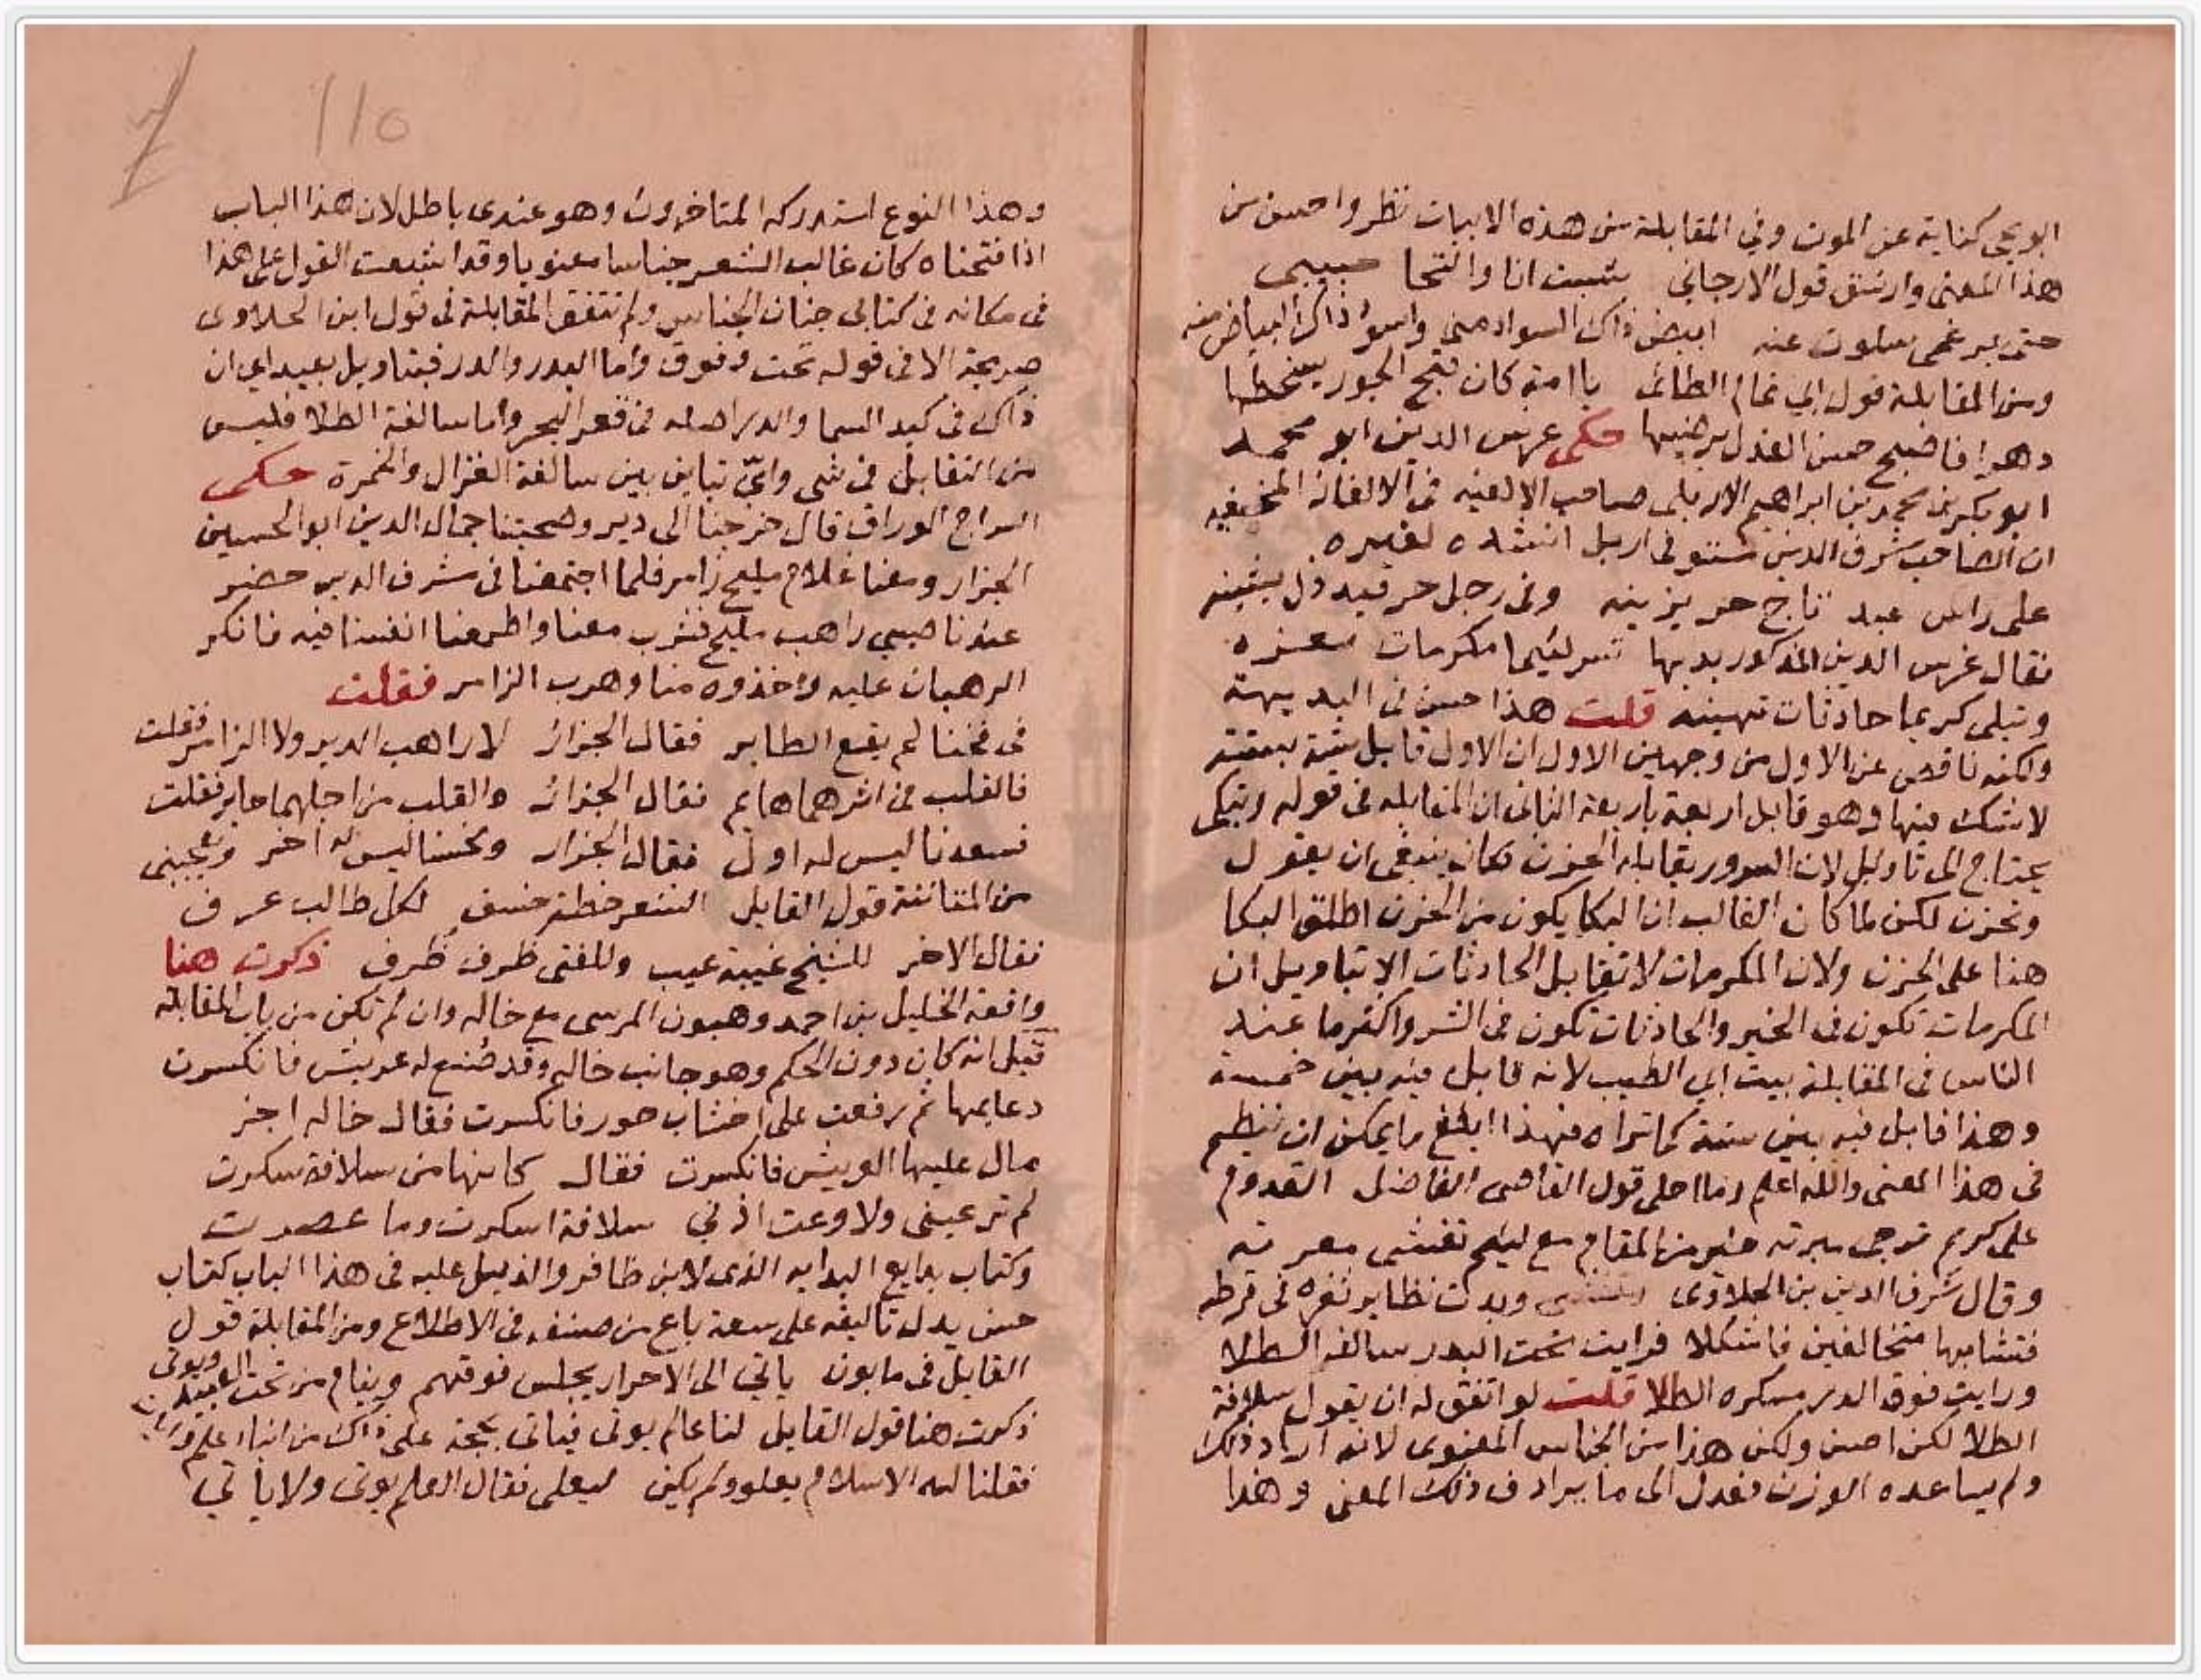 ابويحيى كناية عن الموت وفي المقابلة من هذه الابيات نظر واحسن من
هذا المعنى وارشق قول الارجاني شبت انا والتحا حبيبي
حتى برغمي سلوت عنه ابيض ذاك السواد مني واسود ذاك البياض منه
ومن المقابلة قول ابي تمام الطائي يا امة كان قبح الجور يسخطها
دهرا فاصبح حسن العدل يرضيها حكى عرس الدين ابو محمد
ابو بكر بن محمد بن ابراهيم الاربلي صاحب الالفية في الالغاز المخفيه
ان الصاحب شرف الدين مستوفي اربل انشده لغيره
على راس عبد تاج حر يزينه وفي رجل حر قيد ذل يشينه
فقال غرس الدين المذكور بديها تسر لئيما مكرمات معزه
وتبلي كريما حادثات تهينه قلت هذا حسن في البديهة
ولكنه ناقص عن الاول من وجهين الاول ان الاول قابل ستة بستة
لا شك فيها وهو قابل اربعة باربعة الثاني ان المقابله في قوله وتبكي
يحتاج الى تاويل لان السرور يقابله الحزن فكان ينبغي ان يقول
وتحزن لكن لما كان الغالب ان البكا يكون من الحزن اطلق البكا
هنا على الحزن ولان المكرمات لا تقابل الحادثات الا بتاويل ان
المكرمات تكون في الخير والحادثات تكون في الشر واكثر ما عند
الناس في المقابلة بيت ابي الطيب لانه قابل فيه بين خمسة
وهذا قابل فيه بين ستة كما تراه فهذا ابلغ ما يمكن ان ينظم
في هذا المعنى والله اعلم وما احلى قول القاضي الفاضل القدوم
على كريم ترجى مبرته خير من المقام مع لئيم تخشى معرته
وقال شرف الدين بن الحلاوى وبدت نظاير ثغره في قرطه
فتشابها متخالفين فاشكلا فرايت تحت البدر سالفة الطلا
ورايت فوق الدر مسكره الطلا قلت لو اتفق له ان يقول سلافة
الطلا لكن احسن ولكن هذا من الجناس المعنوى لانه اراد ذلك
ولم يساعده الوزن فعدل الى ما يرادف ذلك المعنى وهذا
وهذا النوع استدركه المتاخرون وهو عندى باطل لان هذا الباب
اذا فتحناه كان غالب الشعر جناسا معنويا وقد اشبعت القول على هذا
في مكانه في كتابي جنان الجناس ولم تتفق المقابلة في قول ابن الحلاوى
صريحة الا في قوله تحت وفوق واما البدر والدر فبتاويل بعيد اي ان
ذاك في كبد السما والدر اصله في قعر البحر واما سالفة الطلا فليس
من التقابل في شي واي تباين بين سالفة الغزال والخمرة حكى
السراج الوراق قال خرجنا الى دير وصحبتنا جمال الدين ابوالحسين
الجزار ومعنا غلام مليح زامر فلما اجتمعنا في شرف الدير حضر
عندنا صبي راهب مليح فشرب معنا واطمعنا انفسنا فيه فانكر
الرهبان عليه واخذوه منا وهرب الزامر فقلت
في فخنا لم يقع الطاير فقال الجزار لا راهب الدير ولا الزامر فقلت
فالقلب في اثرهما هايم فقال الجزار والقلب من اجلهما حاير فقلت
فسعدنا ليس له اول فقال الجزار ونحسنا ليس له اخر ويعجبني
من المقابلة قول القايل الشعر خطة خسف لكل طالب عرف
فقال الاخر للشيخ غيبة عيب وللفتى ظرف ظرف ذكرت هنا
واقعة الخليل بن احمد وهبون المرسى مع خاله وان لم تكن من باب المقابله
قيل انه كان دون الحكم وهو جانب خاله وقد صنع له عريش فانكسرت
دعايمها ثم رفعت على اخشاب حور فانكسرت فقال خاله اجز
مال عليها العريش فانكسرت فقال كانها من سلافة سكرت
لم تر عيني ولا وعت اذني سلافة اسكرت وما عصرت
وكتاب بدايع البدايه الذى لابن ظافر والذيل عليه في هذا الباب كتاب
حسن يدل تاليفه على سعة باع من صنفه في الاطلاع ومن المقابلة قول
القايل في مابون ياتي الى الاحرار يجلس فوقهم وينام من تحت العبيد ويوتى
ذكرت هنا قول القايل لنا عالم يوتى فياتي بحجة على ذاك من انباء علم
فقلنا له الاسلام يعلو ولم يكن ليعلى فقال العلم يوتى ولا ياتي
١١٥